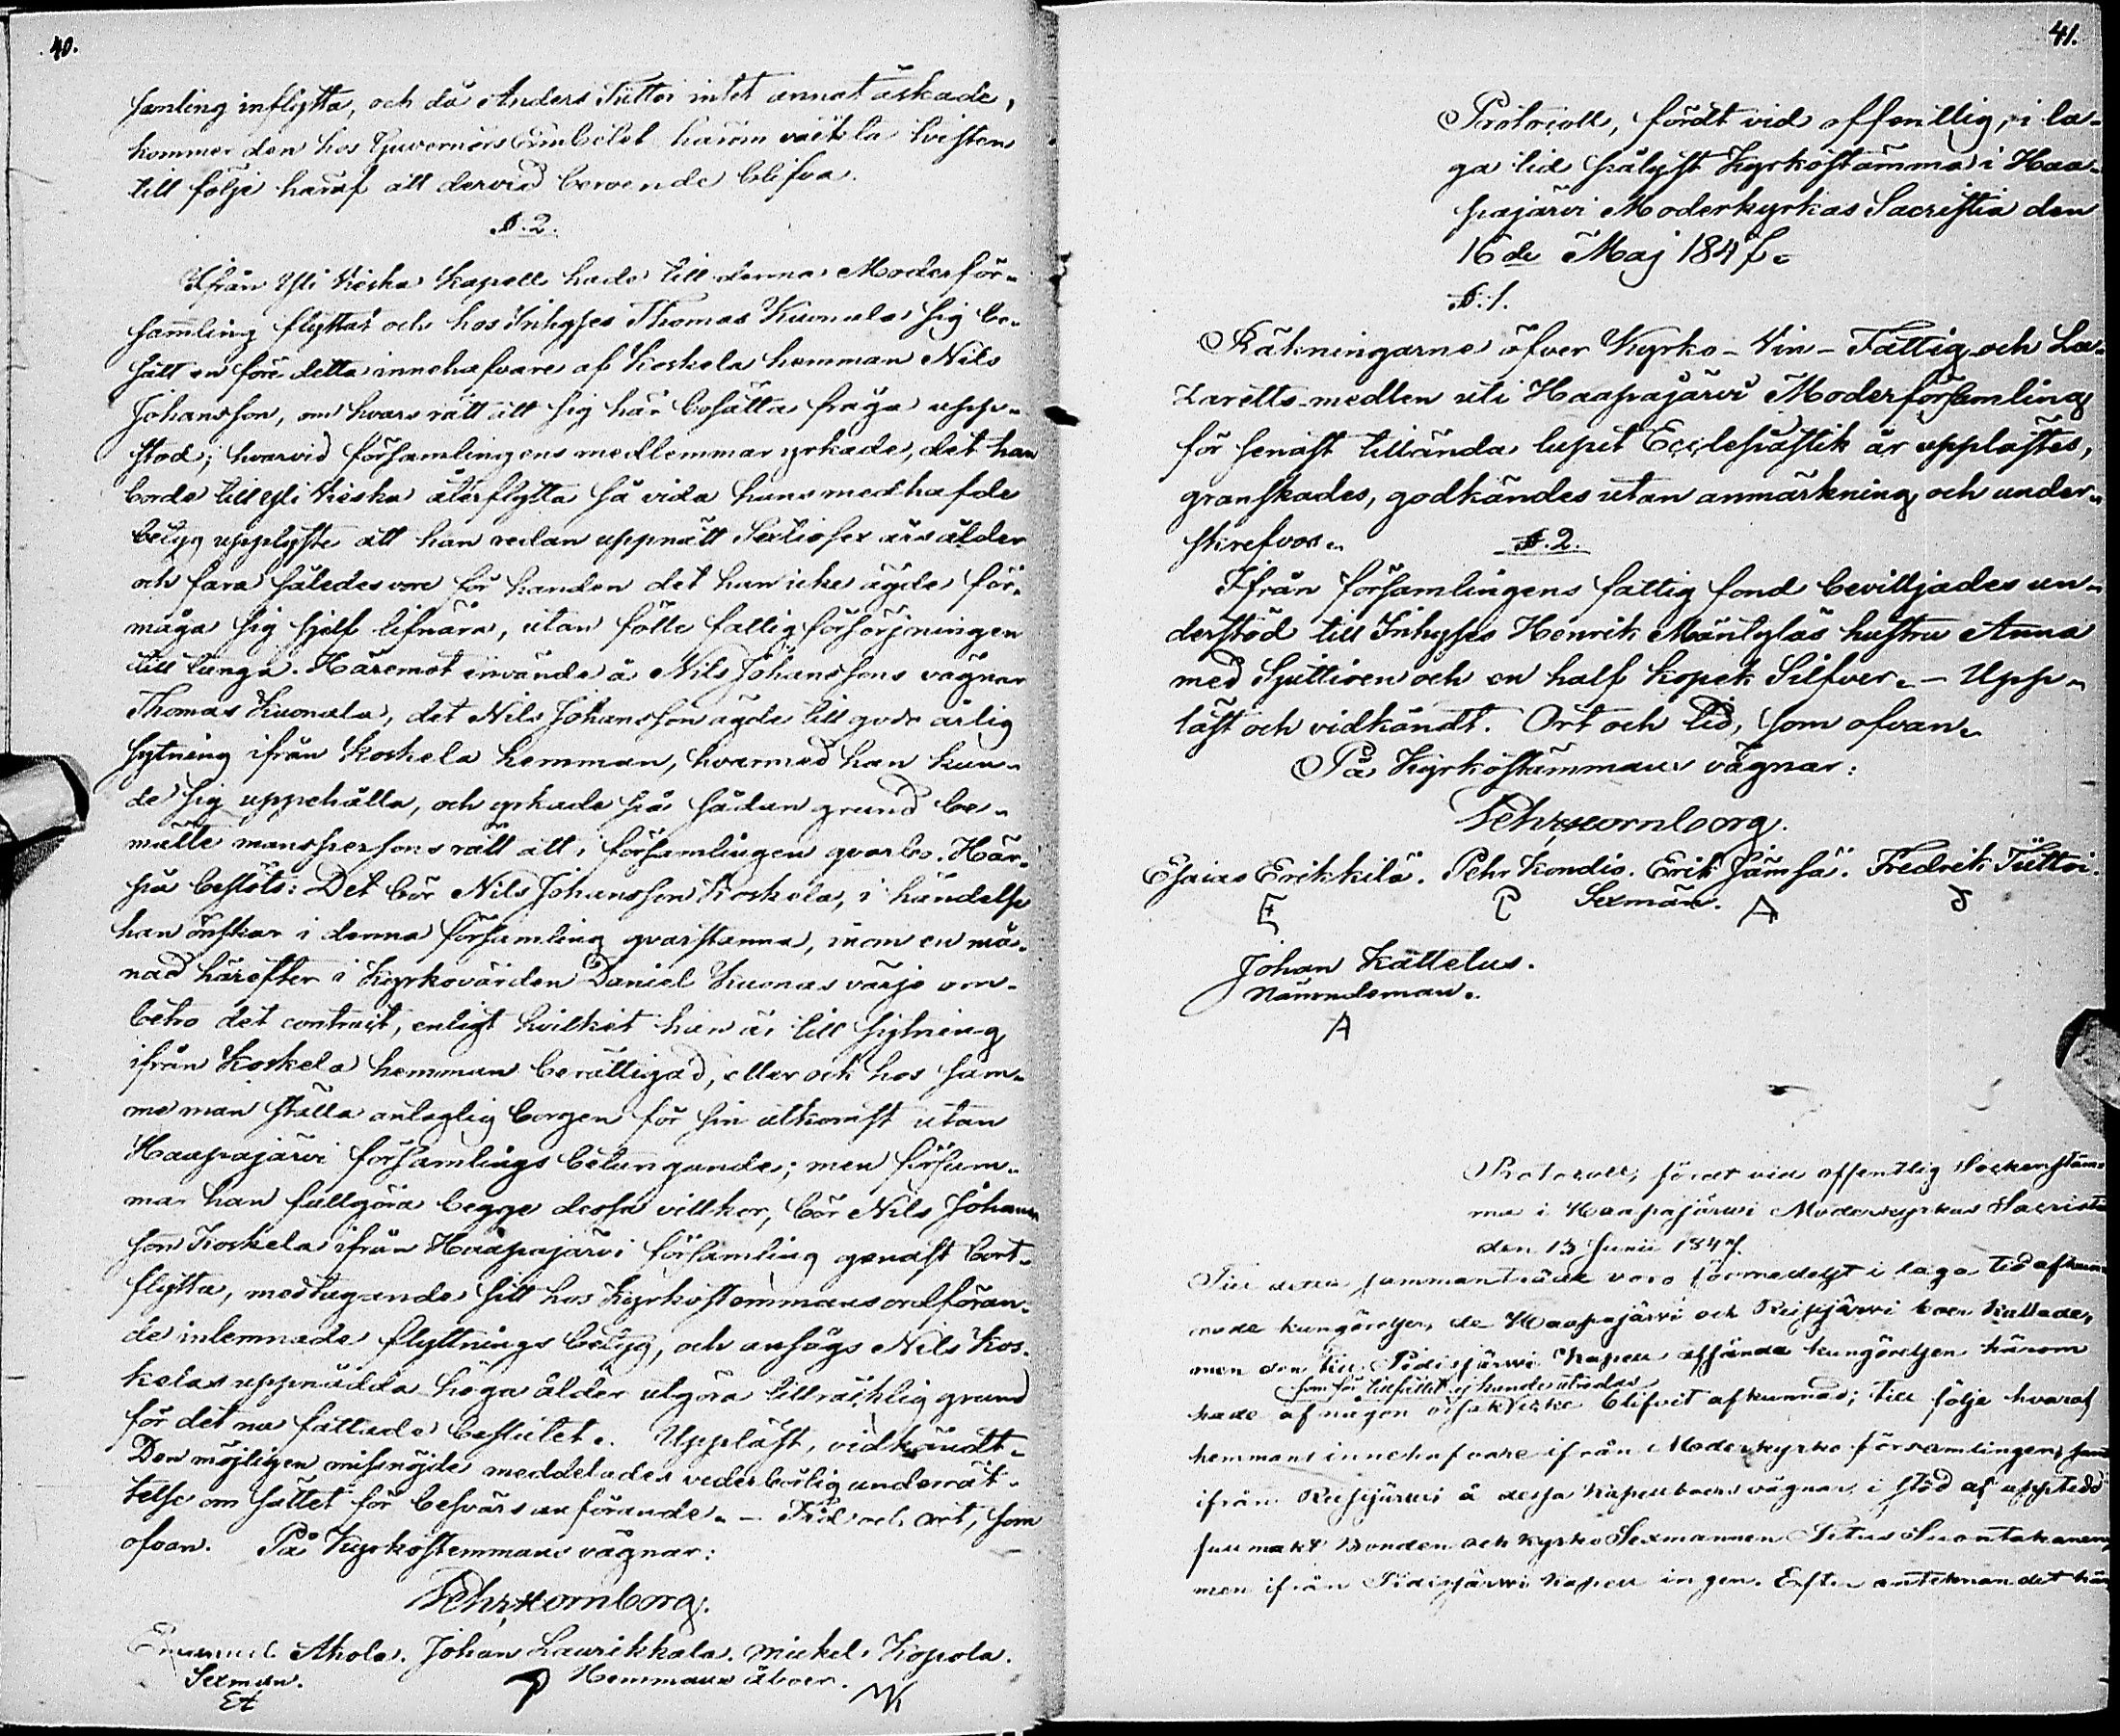 40.
samling inflytta, och då Anders Tuttoi intet annat äskade,
kommer den hos Guvernörs Embetet härom väckta tvisten
till följe häraf att dervid beroende blifva.
§. 2.
Ifrån Yli Kieska Kapell hade till denna Moderför-
samling flyttat och hos Inhyses Thomas Kuonala sig be-
satt en före detta innehafvare af Koskela hemman Nils
Johansson, om hvars rätt att sig här bosätta fråga upp-
stod; hvarvid församlingens medlemmar yrkade, det han
borde till Yli Kieska återflytta så vida hans medhafde
betyg upplyste att han redan uppnått Sextiosex års ålder
och fara således vore för handen det han icke ägde för-
måga sig sjelf lifnära, utan fölle fattigförsörjningen
till tunga. Häremot invände å Nils Johanssons vägnar
Thomas Kuonala, det Nils Johansson ägde till godo årlig
sytning ifrån Koskela hemman, hvarmed han kun-
de sig uppehålla, och yrkade på sådan grund be-
mälte mansperson's rätt att i församlingen qvarbo. Här-
på beslöts: Det bör Nils Johansson Koskela, i händelse
han önskar i denna församling qvarstanna, inom en må-
nad härefter i Kyrkovärden Daniel Kuonas värjo om-
betro det contract, enligt hvilket han är till sytning
ifrån Koskela hemman berättigad, eller ock hos sam-
me man ställa antaglig borgen för sin utkomst utan
Haapajärvi församlings betungande; men försum-
mar han fullgöra begge dessa villkor, bör Nils Johans
son Koskela ifrån Haapajärvi församling genast bort-
flytta, medtagande sitt hos Kyrkostemmans ordföran-
de inlemnade flyttnings betyg, och ansågs Nils Kos-
kelas uppnådda höga ålder utgöra tillräcklig grund
för det nu fattade beslutet. Uppläst, vidkändt.
Den möjligen missnöjde meddelades vederbörlig underrät-
telse om sättet för besvärs anförande. — Tid och ort, som
ofvan. På Kyrkostemmans vägnar:
Pehr Hornborg.
Emanuel Ahola. Johan Laurikkala. Mickel Kopola.
Sexman. Hemmans åboer.
EA
41.
Protocoll, fördt vid offentlig, i la-
ga tid pålyst Kyrkostämma i Haa-
pajärvi Moderkyrkas Sacristia den
16de Maj 1847.
§. 1.
Räkningarne öfver Kyrko- Vin- Fattig och La-
zaretts-medlen uti Haapajärvi Moderförsamling
för senast tilländalupit Ecclesiastik år upplästes,
granskades, godkändes utan anmärkning och under-
skrefvos.
§. 2.
Ifrån församlingens fattig fond bevilljades un-
derstöd till Inhyses Henrik Mäntyläs hustru Anna
med Sjuttioen och en half kopek Silfver. — Upp-
läst och vidkändt. Ort och tid, som ofvan.
På Kyrkostämmans vägnar:
Pehr Hornborg.
Esaias Erikkilä. Pehr Kondio. Erik Jämsä. Fredrik Tuttoi.
Sexmän.
E P A
Johan Kattelus.
Nämndeman.
A
Protocoll, fördt vid offentlig Sockenstäm-
ma i Haapajärvi Moderkyrkas Sacristia
den 13 Junii 1847.
Till detta sammanträde voro förmedelst i laga tid afkun-
nade kungörelser, de Haapajärvi och Reisjärvi boer kallade,
men den till Pidisjärvi Kapell afsände kungörelsen härom
som för tillfället ej kunde utredas
hade af någon orsak icke blifvit afkunnad; till följe hvaraf
hemmans innehafvare ifrån Moderkyrko församlingen, samt
ifrån Reisjärvi å dessa Kapellboers vägnar, i stöd af uppteedd
fullmakt Bonden och Kyrko Sexmannen Petus Suontakanen,
men ifrån Pidisjärvi Kapell ingen. Efter antecknandet här